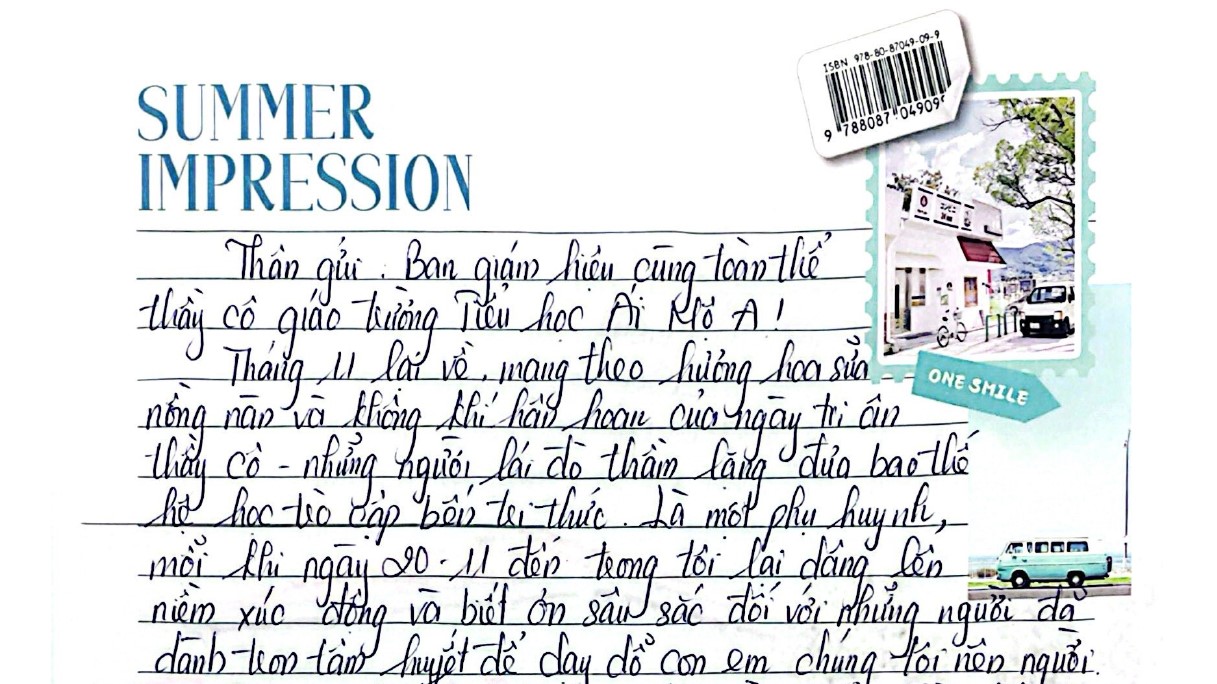 SUMMER
IMPRESSION
ISBN 978-80-87049-09-9
9 788087 049099
コンビニ
ONE SMILE
Thân gửi: Ban giám hiệu cùng toàn thể
thầy cô giáo trường Tiểu học Ái Mỗ A!
Tháng 11 lại về, mang theo hương hoa sữa
nồng nàn và không khí hân hoan của ngày tri ân
thầy cô - những người lái đò thầm lặng đưa bao thế
hệ học trò cập bến tri thức. Là một phụ huynh,
mỗi khi ngày 20-11 đến trong tôi lại dâng lên
niềm xúc động và biết ơn sâu sắc đối với những người đã
dành trọn tâm huyết để dạy dỗ con em chúng tôi nên người.